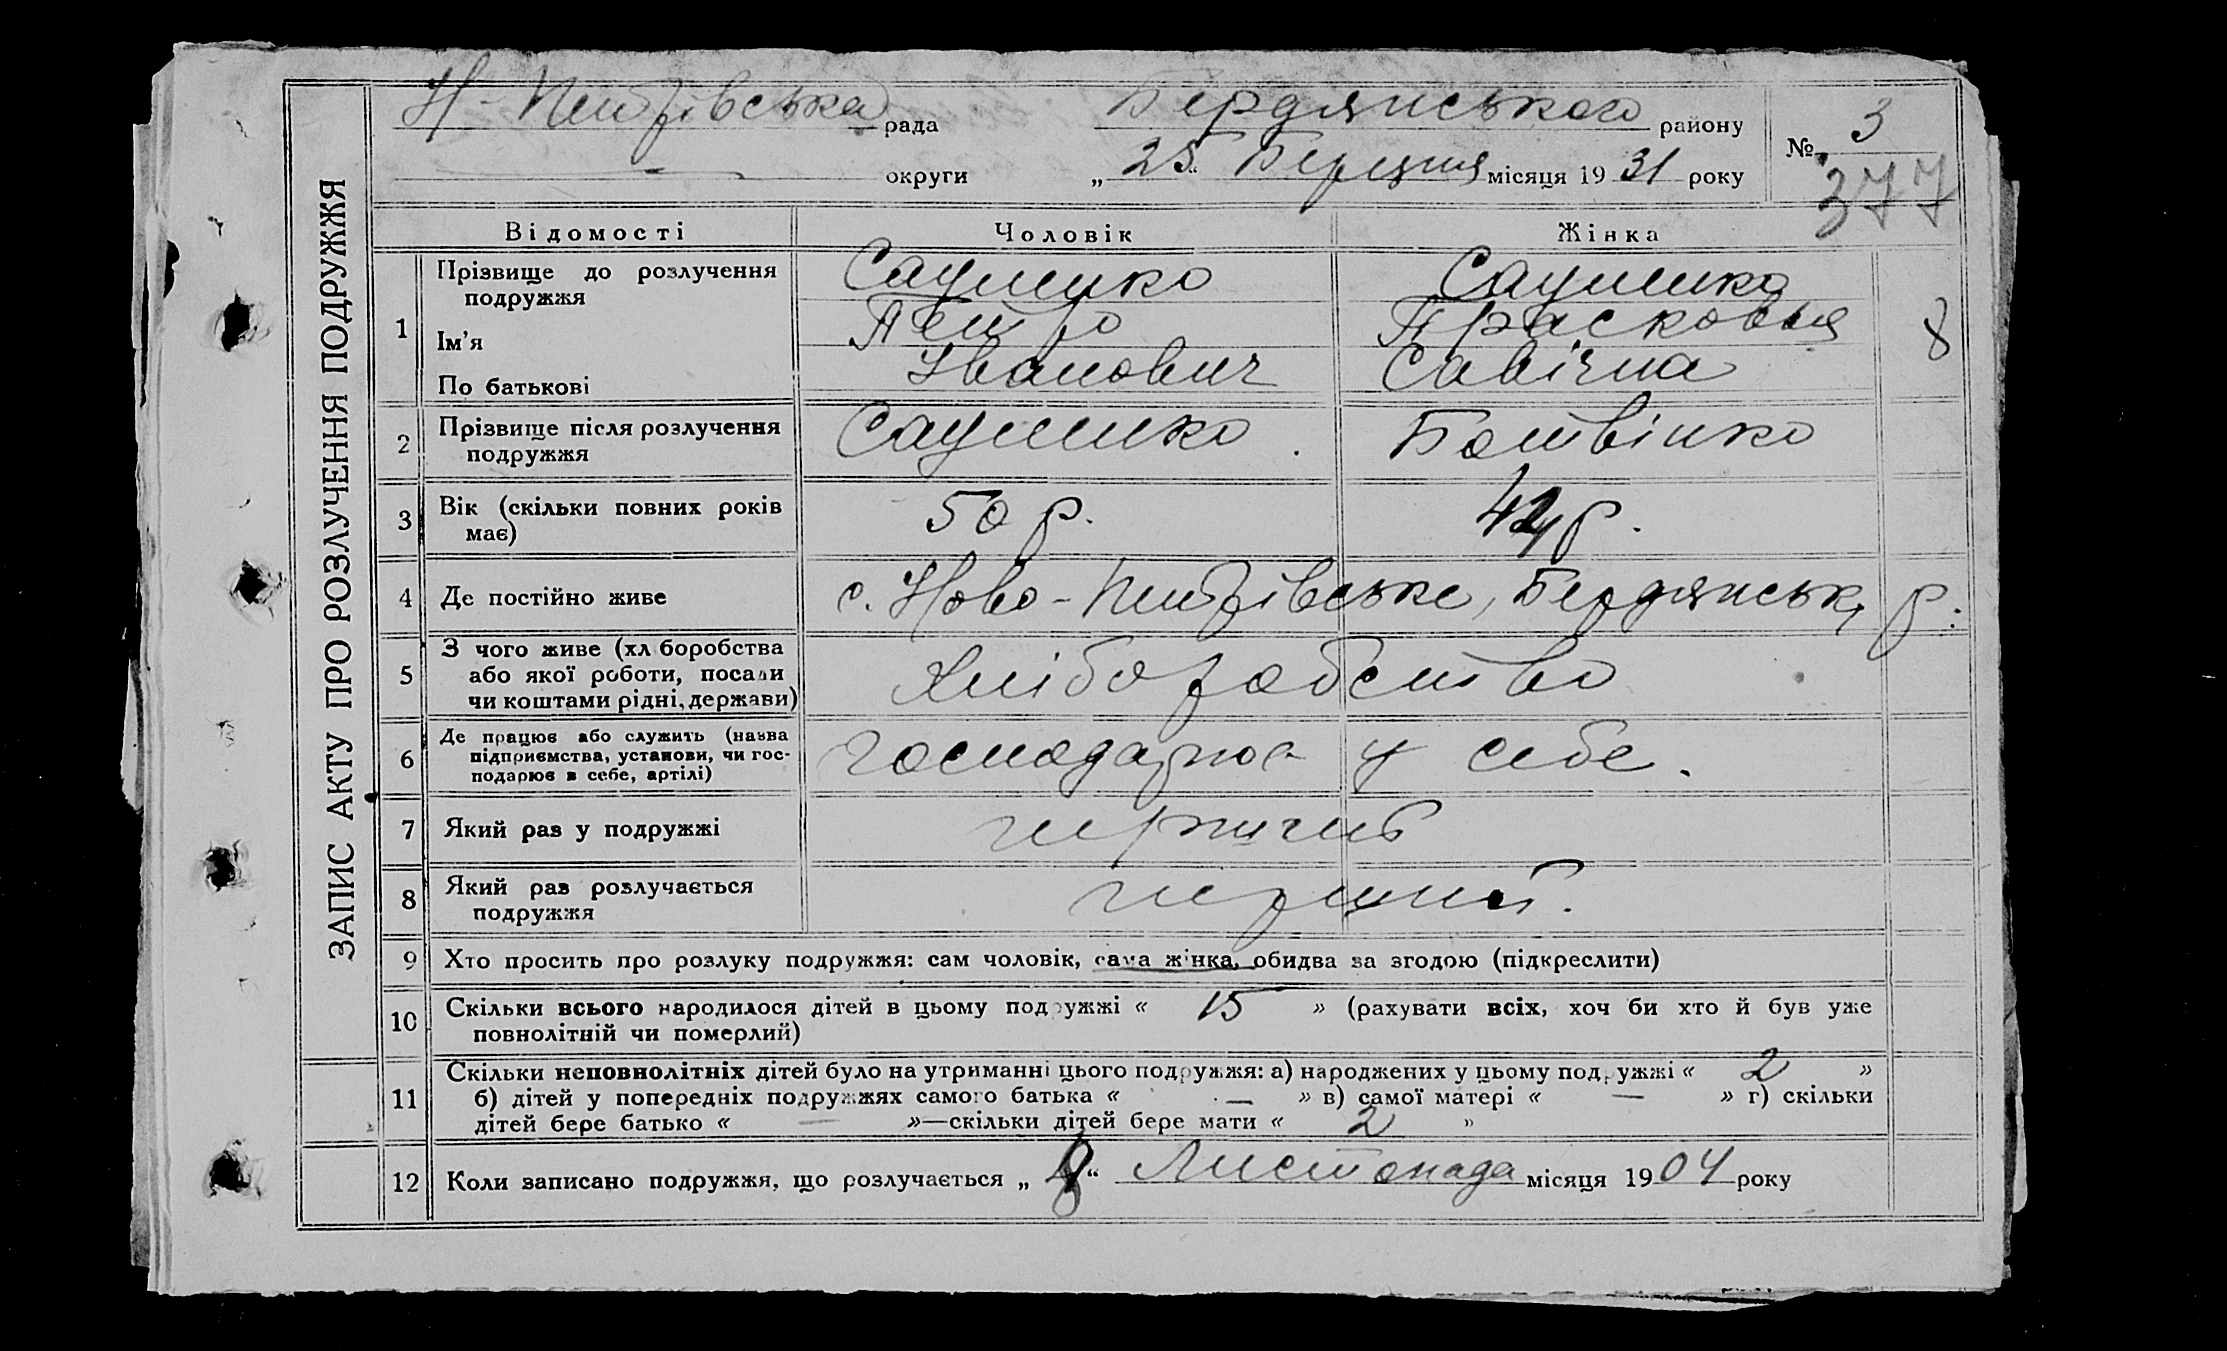 ЗАПИС АКТУ ПРО РОЗЛУЧЕННЯ ПОДРУЖЖЯ
Н-Петрівська рада Бердянського району № 3
округи „25“ Березня місяця 1931 року
377
Відомості Чоловік Жінка
1 Прізвище до розлучення подружжя Саушко Саушко
Ім'я Петро Прасковья
По батькові Іванович Савічна
8
2 Прізвище після розлучення подружжя Саушко Ботвінко
3 Вік (скільки повних років має) 50 р. р.
4 Де постійно живе с. Ново-Петрівське, Бердянськ, р.
5 З чого живе (хл боробства
або якої роботи, посади
чи коштами рідні, держави) Хліборобство
6 Де працює або служить (назва
підприємства, установи, чи гос-
подарює в себе, артілі) господарює у себе.
7 Який раз у подружжі
8 Який раз розлучається подружжя перший.
9 Хто просить про розлуку подружжя: сам чоловік, сама жінка, обидва за згодою (підкреслити)
10 Скільки всього народилося дітей в цьому подружжі « 15 » (рахувати всіх, хоч би хто й був уже
повнолітній чи померлий)
11 Скільки неповнолітніх дітей було на утриманні цього подружжя: а) народжених у цьому подружжі « 2 »
б) дітей у попередніх подружжях самого батька « — » в) самої матері « — » г) скільки
дітей бере батько « — »—скільки дітей бере мати « 2 »
12 Коли записано подружжя, що розлучається „8“ Листопада місяця 1904 року